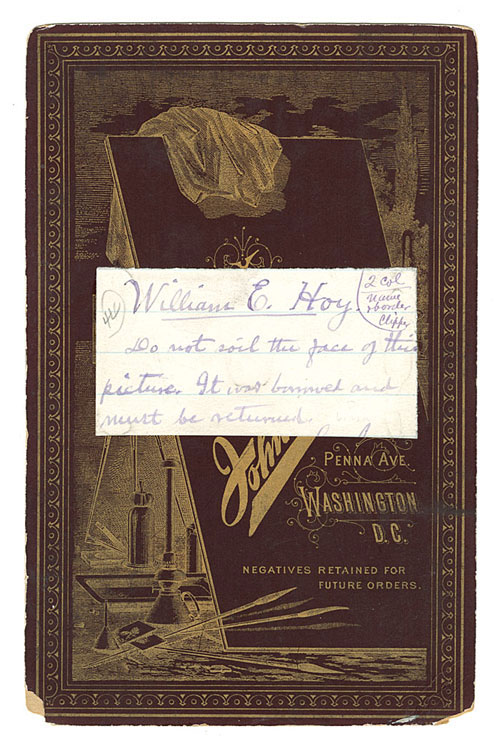 44
William E. Hoy.
2 col
name
border
Clipper
Do not soil the face of this
picture. It was borrowed and
must be returned.
John
PENNA AVE.
WASHINGTON
D.C.
NEGATIVES RETAINED FOR
FUTURE ORDERS.